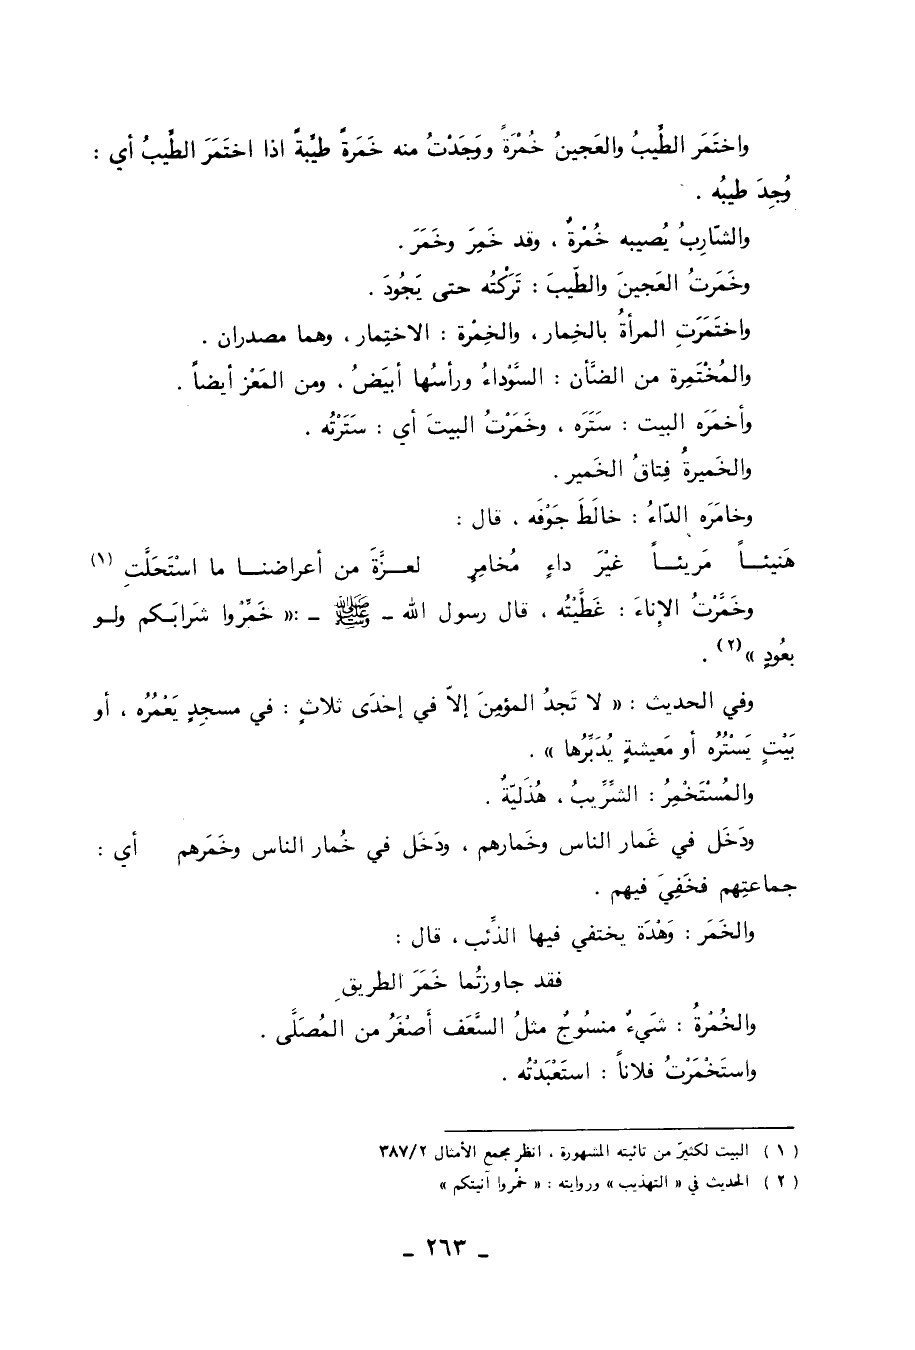 واختَمَر الطِّيبُ والعَجينُ خُمْرَةً ووَجَدْتُ منه خَمَرةً طيِّبةً اذا اختَمَرَ الطِّيبُ أي :
وُجِدَ طيبُه .
والشّارِبُ يُصيبه خُمْرةٌ ، وقد خَمِرَ وخَمَرَ .
وخَمَرتُ العَجينَ والطّيبَ : تَرَكْتُه حتى يَجُودَ .
واختَمَرَتِ المرأةُ بالخِمار ، والخِمْرة : الاختِمار ، وهما مصدران .
والمُخْتَمِرة من الضَّأن : السَّوْداءُ ورأسُها أبيَضُ ، ومن المَعْز أيضاً .
وأخمَرَه البيت : سَتَرَه ، وخَمَرْتُ البيتَ أي : سَتَرْتُه .
والخَميرةُ فِتاقُ الخَمير .
وخامَرَه الدّاءُ : خالَطَ جَوْفَه ، قال :
هَنيئــاً مَريئــاً غيْرَ داءٍ مُخامِرٍ لعــزَّةَ من أعراضنــا ما اسْتَحَلَّتِ (١)
وخَمَّرْتُ الإناءَ : غَطَّيْتُه ، قال رسول الله ـ ﷺ ـ :« خَمِّرْوا شرابَـكم ولـو
بعُودٍ »(٢) .
وفي الحديث : « لا تَجدُ المؤمِنَ إلاّ في إحْدَى ثلاثٍ : في مسجدٍ يَعْمُرُه ، أو
بَيْتٍ يَسْتُرُه أو مَعيشةٍ يُدَبِّرُها » .
والمُسْتَخْمِرُ : الشِّرِّيبُ ، هُذَليّةٌ .
ودَخَل في غَمار الناس وخَمارهم ، ودَخَل في خُمار الناس وخَمَرهم أي :
جماعتِهم فخَفِيَ فيهم .
والخَمَر : وَهْدَة يختفي فيها الذِّئب ، قال :
فقد جاوزتُما خَمَرَ الطريقِ
والخُمْرةُ : شيءٌ منسُوجٌ مثلُ السَّعَف أصْغَرُ من المُصَلَّى .
واستَخْمَرْتُ فلاناً : استَعْبَدْتُه .
( ١ ) البيت لكثيّر من تائيته المشهورة ، انظر مجمع الأمثال ٣٨٧/٢
( ٢ ) الحديث في « التهذيب » وروايته : « خمّروا آنيتكم »
ـ ٢٦٣ ـ